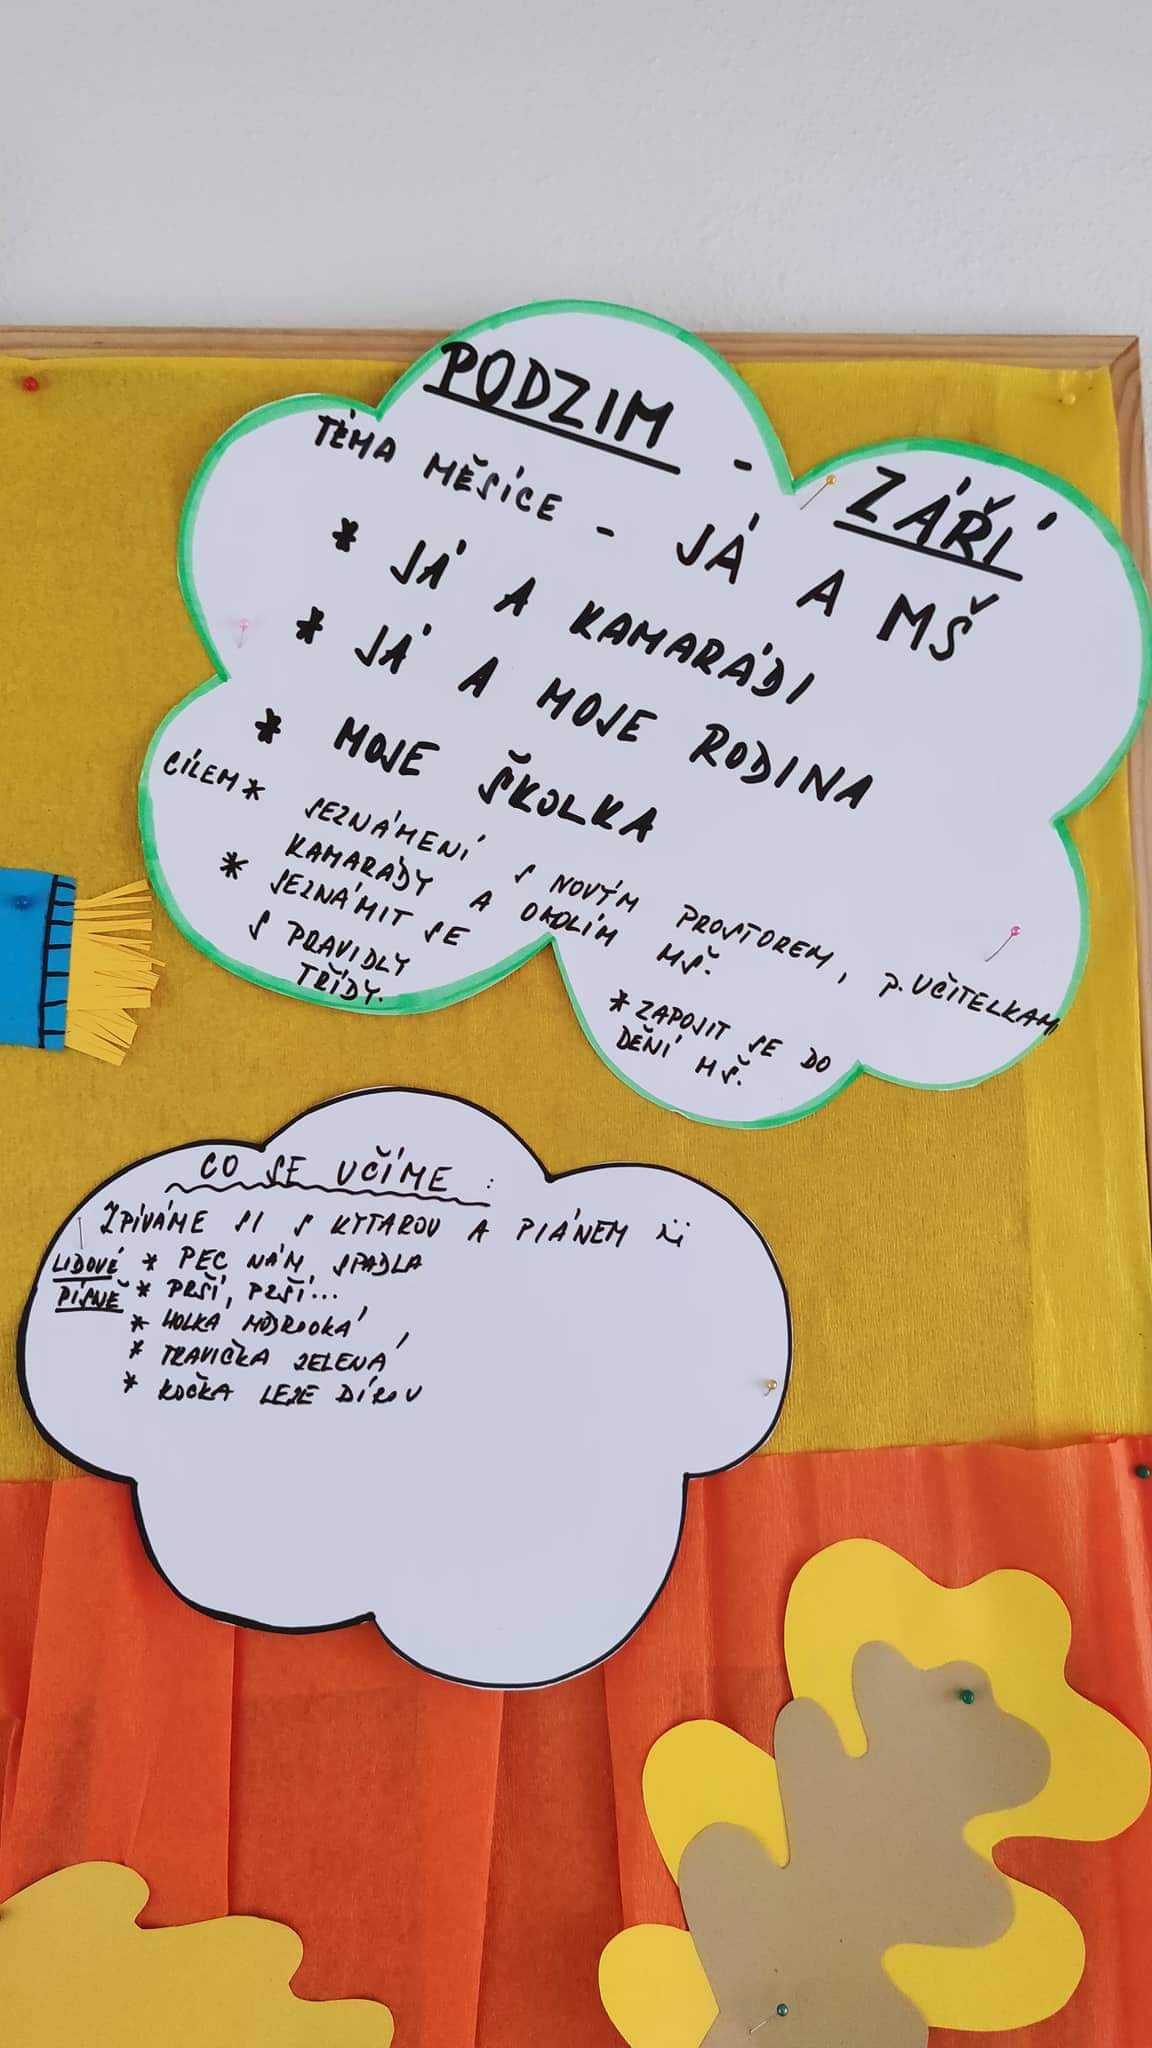 PODZIM - ZÁŘÍ
TÉMA MĚSÍCE - JÁ A MŠ
* JÁ A KAMARÁDI
* JÁ A MOJE RODINA
* MOJE ŠKOLKA
CÍLEM * SEZNÁMENÍ S NOVÝM PROSTOREM, P.UČITELKAMI
KAMARÁDY A OKOLÍM MŠ.
* SEZNÁMIT SE
S PRAVIDLY
TŘÍDY.
* ZAPOJIT SE DO
DĚNÍ MŠ.
CO SE UČÍME :
ZPÍVÁME SI S KYTAROU A PIÁNEM
LIDOVÉ * PEC NÁM SPADLA
PÍSNĚ * PRŠÍ, PRŠÍ...
* HOLKA MODROOKÁ
* TRAVIČKA ZELENÁ
* KOČKA LEZE DÍROU